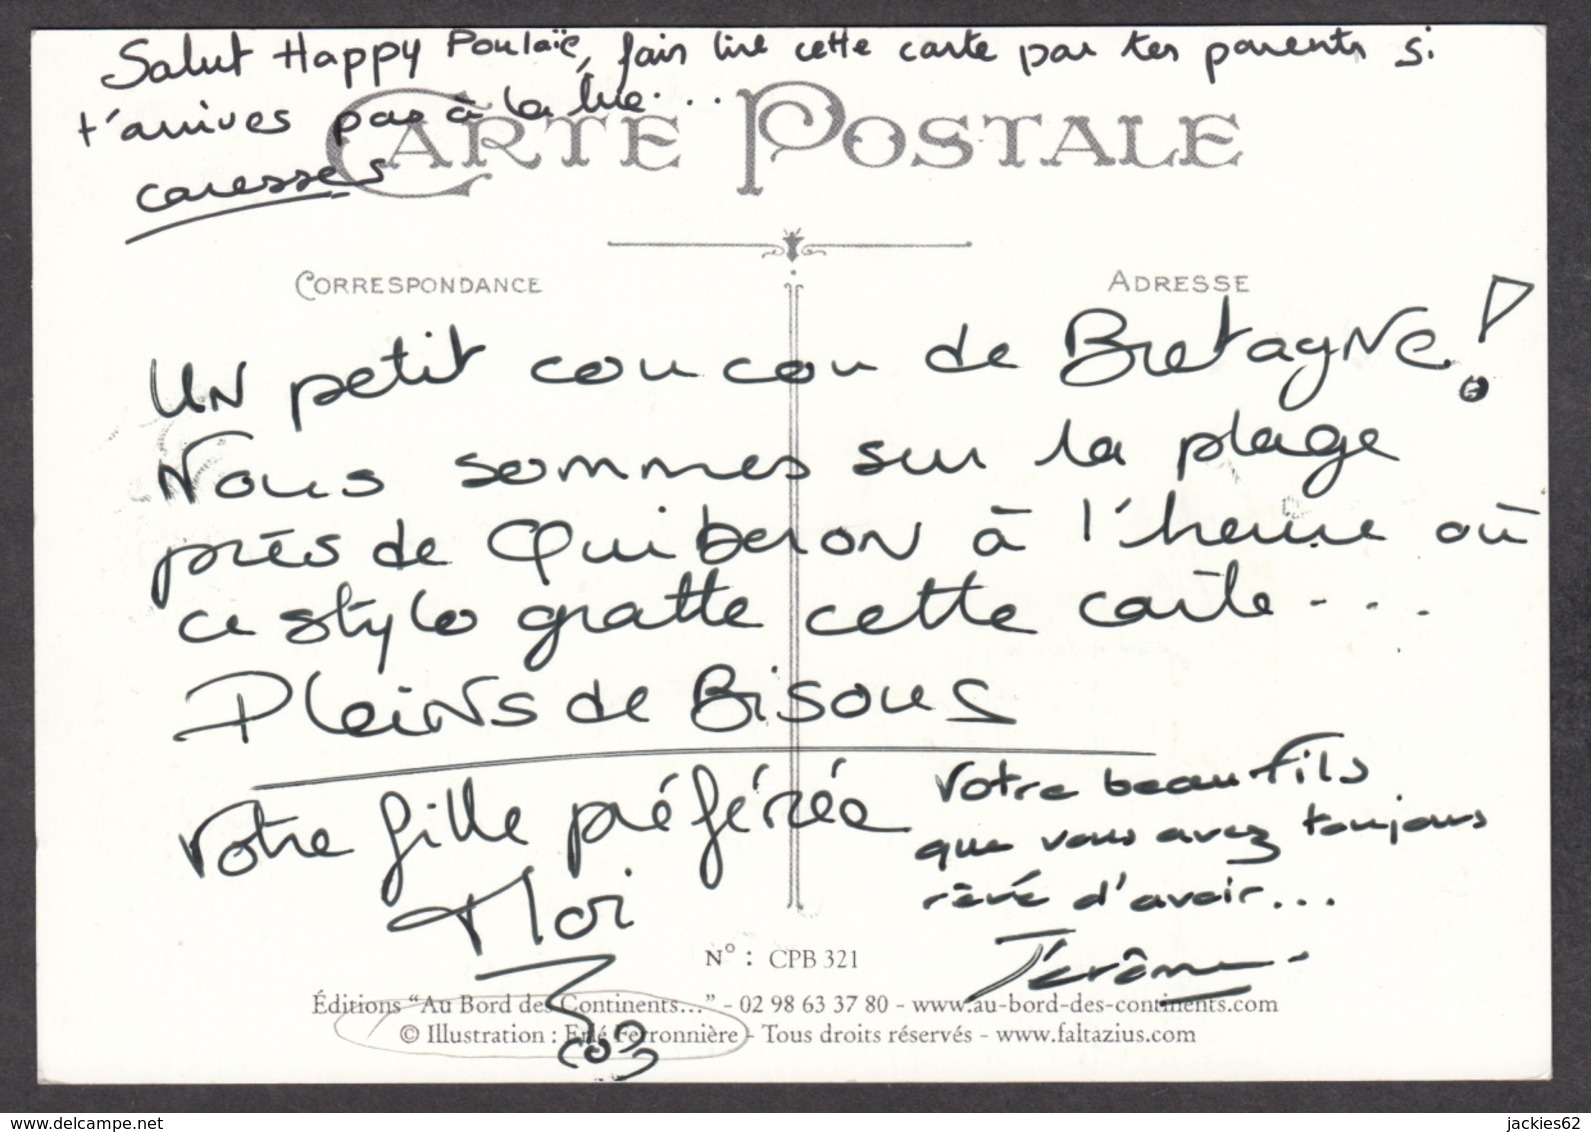 Salut Happy Poulaïe, fais lire cette carte par tes parents si
t'arrives pas à la lire...
caresses
CARTE POSTALE
CORRESPONDANCE
ADRESSE
UN petit coucou de BretagNe!
Nous sommes sur la plage
près de QuiberoN à l'heure où
ce stylo gratte cette carte...
PleiNs de Bisous
Votre fille préférée
Moi
Votre beau fils
que vous avez toujours
rêvé d'avoir...
Jérôme
N° : CPB 321
Éditions “Au Bord des Continents...” - 02 98 63 37 80 - www.au-bord-des-continents.com
© Illustration : Erlé Ferronnière - Tous droits réservés - www.faltazius.com
jackies62